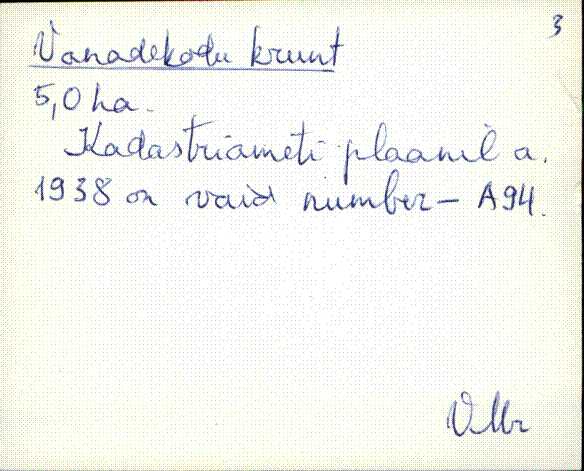 3
Vanadekodu krunt
5,0 ha.
Kadastriameti plaanil a.
1938 on vaid number – A94.
VMr